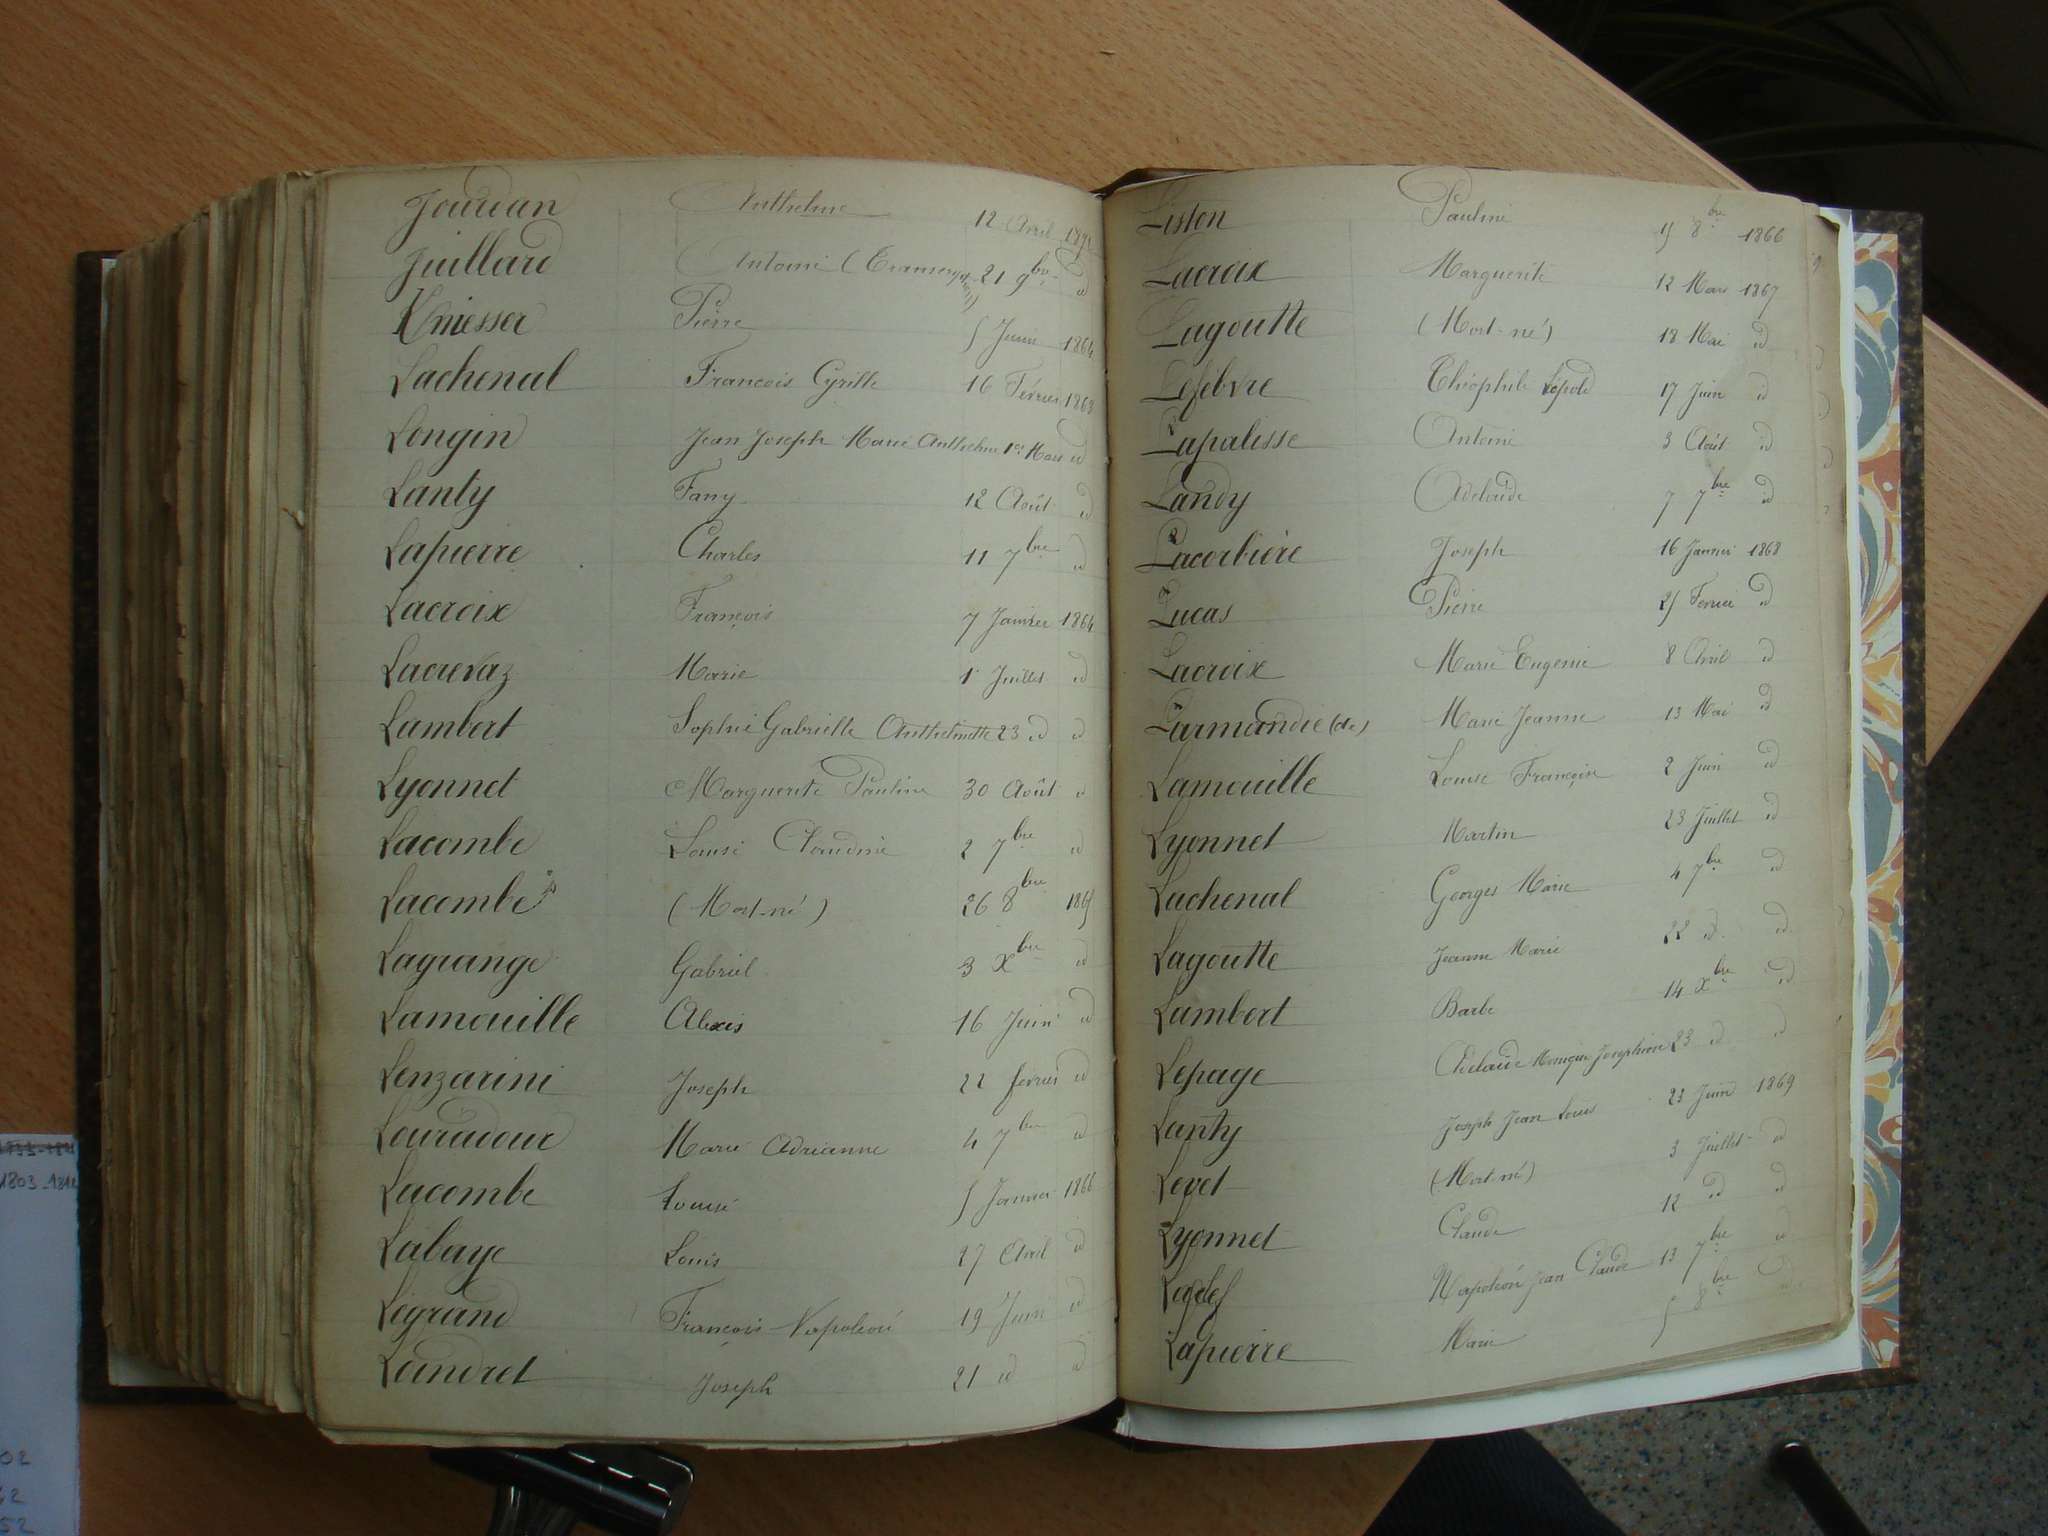 Jourdan Anthelme 12 Avril 1872
Juillard Antoine ( 21 9bre id
Kniesser Pierre 5 Juin 1864
Lachenal François Cyrille 16 Février 1863
Longin Jean Joseph Marie Anthelme 1er Mars id
Lanty Fany 12 Août id
Lapierre Charles 11 7bre id
Lacroix François 7 Janvier 1864
Lacrevaz Marie 1r Juillet id
Lambert Sophie Gabrielle Anthelmette 23 id id
Lyonnet Marguerite Pauline 30 Août id
Lacombe Louise Claudine 2 7bre id
Lacombe (Mort-né) 26 8bre 1865
Lagrange Gabriel 3 Xbre id
Lamouille Alexis 16 Juin id
Lenzarini Joseph 22 février id
Louradour Marie Adrianne 4 7bre id
Lacombe Louise 5 Janvier 1866
Labaye Louis 27 Avril id
Legrand François Napoléon 19 Juin id
Landret Joseph 21 id id
Liston Pauline 15 8bre 1866
Lacroix Marguerite 12 Mars 1867
Lagoutte (Mort-né) 18 Mai id
Lefebvre Théophile Léopold 17 Juin id
Lapalisse Antoine 3 Août id
Landy Adelaïde 7 7bre id
Lacorbière Joseph 16 Janvier 1868
Lucas Pierre 25 Fevrier id
Lacroix Marie Eugenie 8 Avril id
Larmandie (de) Marie Jeanne 13 Mai id
Lamouille Louise Françoise 2 Juin id
Lyonnet Martin 23 Juillet id
Lachenal Georges Marie 4 7bre id
Lagoutte Jeanne Marie 22 id id
Lambert Barbe 14 Xbre id
Lepage Adelaide Monique Josephine 23 id id
Lanty Joseph Jean Louis 23 Juin 1869
Levet (Mort-né) 3 Juillet id
Lyonnet Claude 12 id id
Napoléon Jean Claude 13 7bre id
Lapierre Marie 5 8bre id
1803-1812
02
62
52